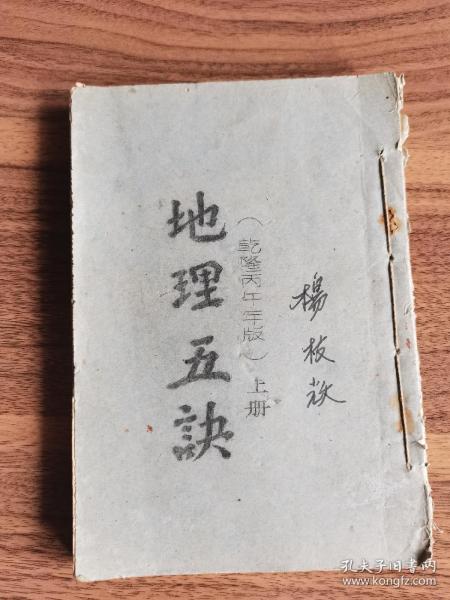 楊枝放
(乾隆丙午年版)上册
地理五訣
孔夫子旧书网
www.kongfz.com